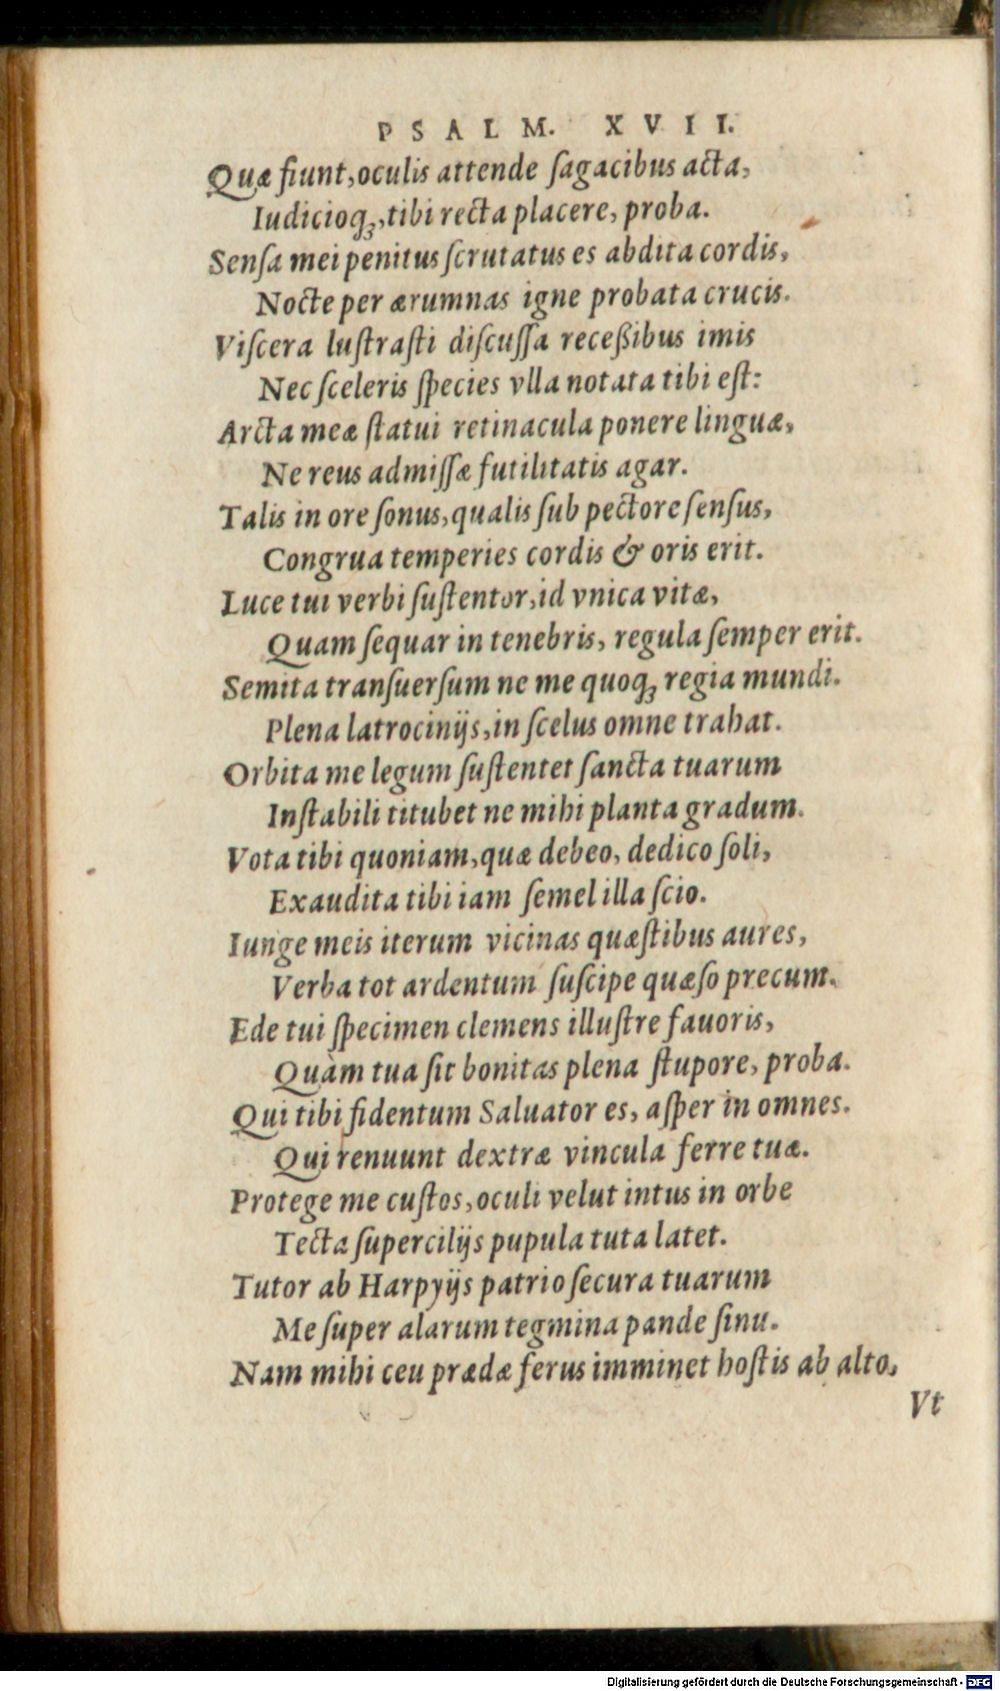 PSALM. XVII.
Quæ fiunt, oculis attende ſagacibus acta,
Iudicioq́ꝫ, tibi recta placere, proba.
Senſa mei penitus ſcrutatus es abdita cordis,
Nocte per ærumnas igne probata crucis.
Viſcera luſtraſti diſcuſſa receßibus imis
Nec ſceleris ſpecies vlla notata tibi eſt:
Arcta meæ ſtatui retinacula ponere linguæ,
Ne reus admiſſæ futilitatis agar.
Talis in ore ſonus, qualis ſub pectore ſenſus,
Congrua temperies cordis & oris erit.
Luce tui verbi ſuſtentor, id vnica vitæ,
Quam ſequar in tenebris, regula ſemper erit.
Semita tranſuerſum ne me quoqꝫ regia mundi.
Plena latrocinijs, in ſcelus omne trahat.
Orbita me legum ſuſtentet ſancta tuarum
Inſtabili titubet ne mihi planta gradum.
Vota tibi quoniam, quæ debeo, dedico ſoli,
Exaudita tibi iam ſemel illa ſcio.
Iunge meis iterum vicinas quæſtibus aures,
Verba tot ardentum ſuſcipe quæſo precum.
Ede tui ſpecimen clemens illuſtre fauoris,
Quàm tua ſit bonitas plena ſtupore, proba.
Qui tibi fidentum Saluator es, aſper in omnes.
Qui renuunt dextræ vincula ferre tuæ.
Protege me cuſtos, oculi velut intus in orbe
Tecta ſupercilijs pupula tuta latet.
Tutor ab Harpyijs patrio ſecura tuarum
Me ſuper alarum tegmina pande ſinu.
Nam mihi ceu prædæ ferus imminet hoſtis ab alto,
Vt
Digitalisierung gefördert durch die Deutsche Forschungsgemeinschaft - DFG